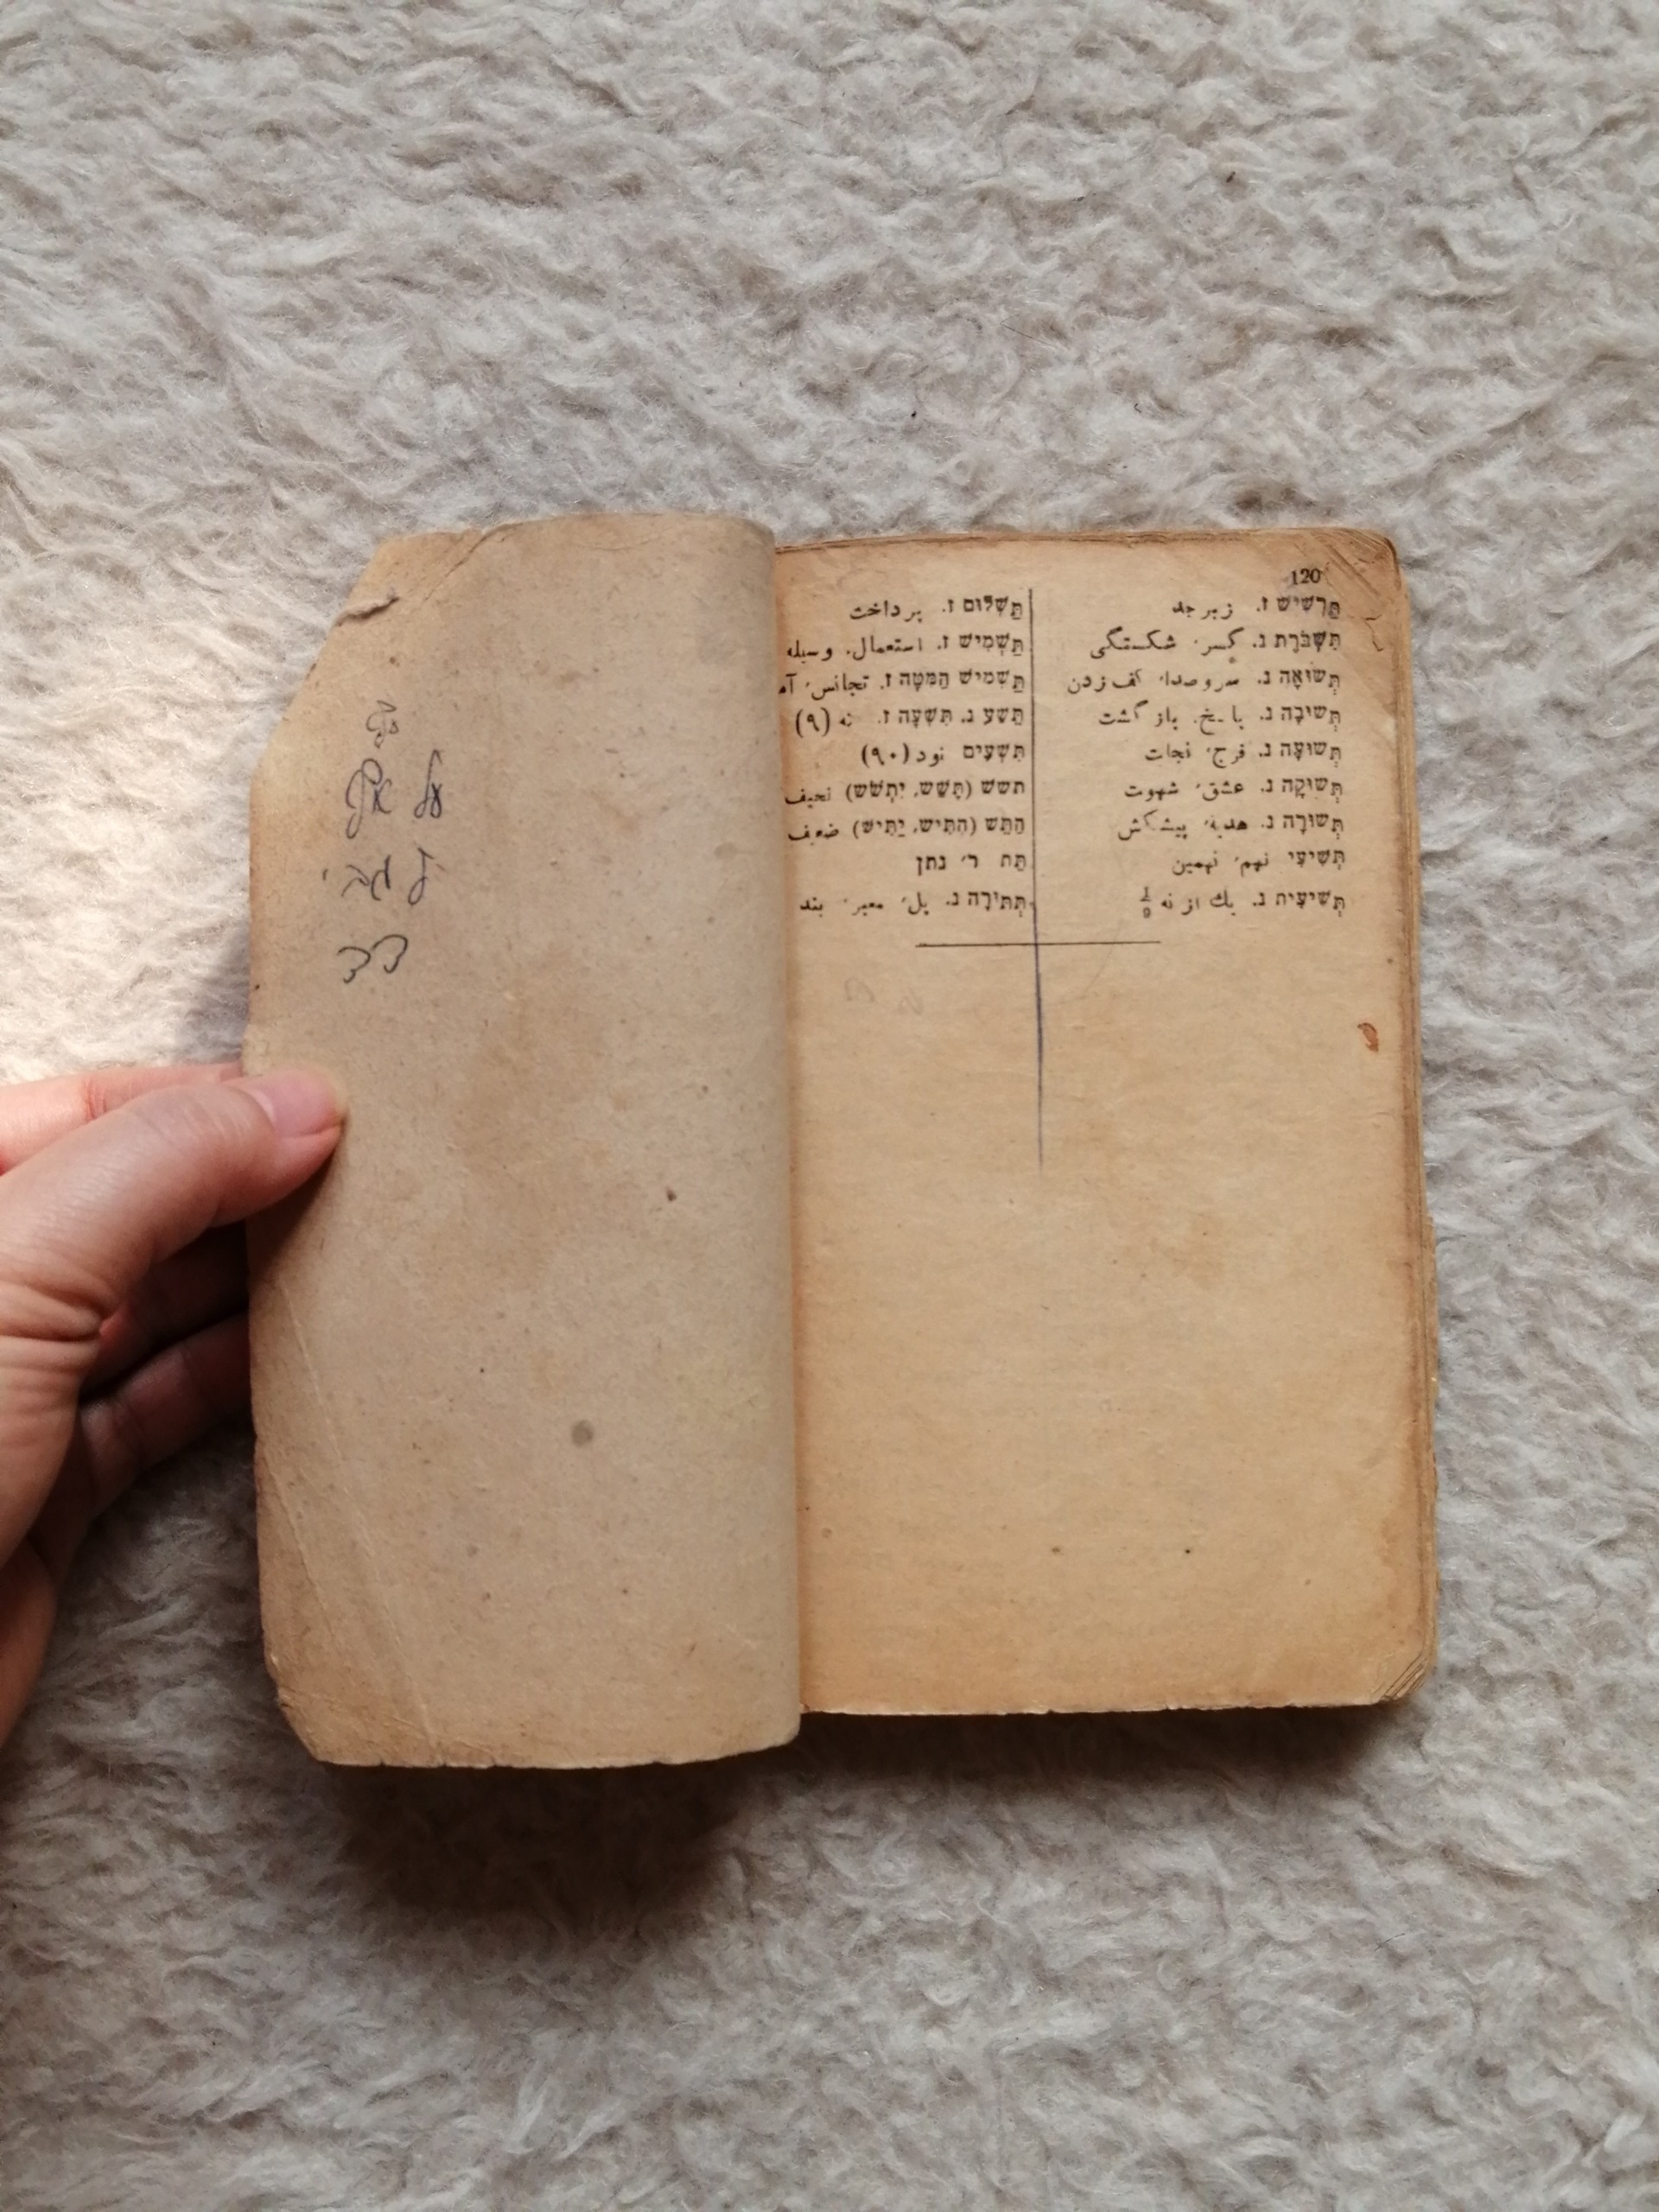 120
תַּרְשִׁישׁ ז. زبرجد
תִּשְׁבֹּרֶת נ. کسر، شکستگی
תְּשׁוּאָה נ. سروصدا، کف زدن
תְּשׁוּבָה נ. پاسخ. بازگشت
תְּשׁוּעָה נ. فرج، نجات
תְּשׁוּקָה נ. عشق، شهوت
תְּשׁוּרָה נ. هدیه، پیشکش
תְּשִׁיעִי نهم، نهمین
תְּשִׁיעִית נ. یك از نه 1/9
תַּשְׁלוּם ז. پرداخت
תַּשְׁמִישׁ ז. استعمال. وسیله
תַּשְׁמִישׁ הַמִּטָּה ז. تجانس،
תֵּשַׁע נ. תִּשְׁעָה ז. نه (۹)
תִּשְׁעִים نود (۹۰)
תשש (תָּשַׁשׁ, יִתְשֹׁשׁ) نحیف
הֵתֵשׁ (הִתִּישׁ, יַתִּישׁ) ضعیف
תַּת ר׳ נתן
תִּתּוּרָה נ. پل، معبر، بند
על אף